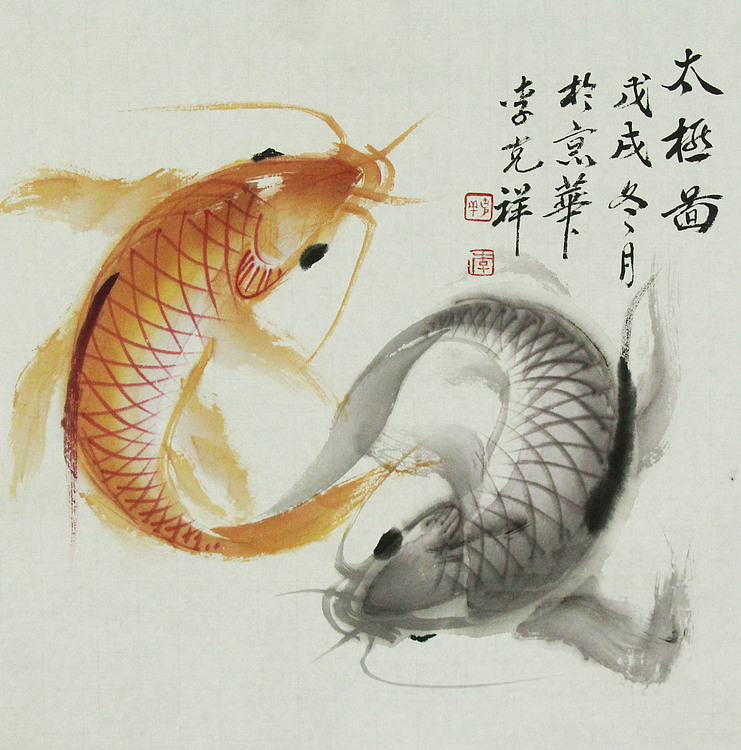 太極圖
戊戌冬月
於京華
李克祥
李